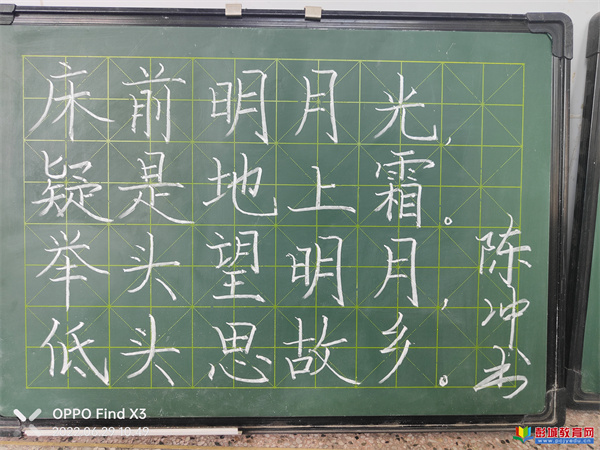 床前明月光,
疑是地上霜。
举头望明月,
低头思故乡。
陈冲书
OPPO Find X3
彭城教育网
www.pcjyedu.cn